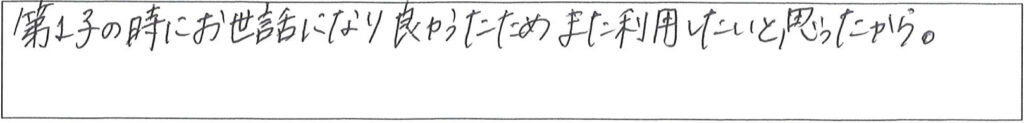 第1子の時にお世話になり良かったためまた利用したいと思ったから。